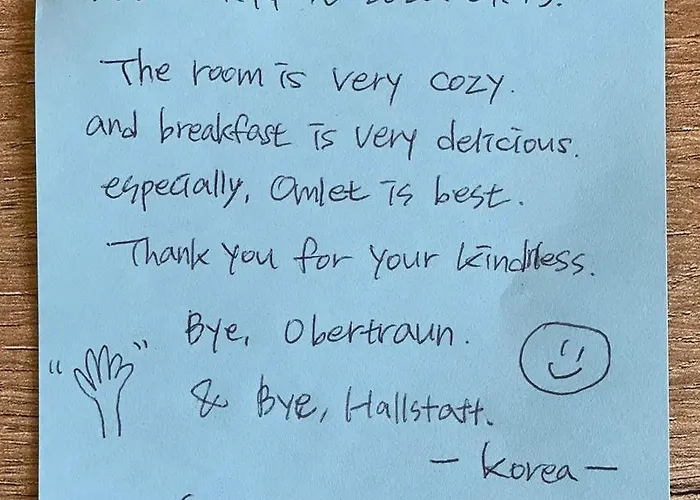 The room is very cozy.
and breakfast is very delicious.
especially, Omlet is best.
Thank you for your kindness.
Bye, Obertraun.
& Bye, Hallstatt.
- Korea -